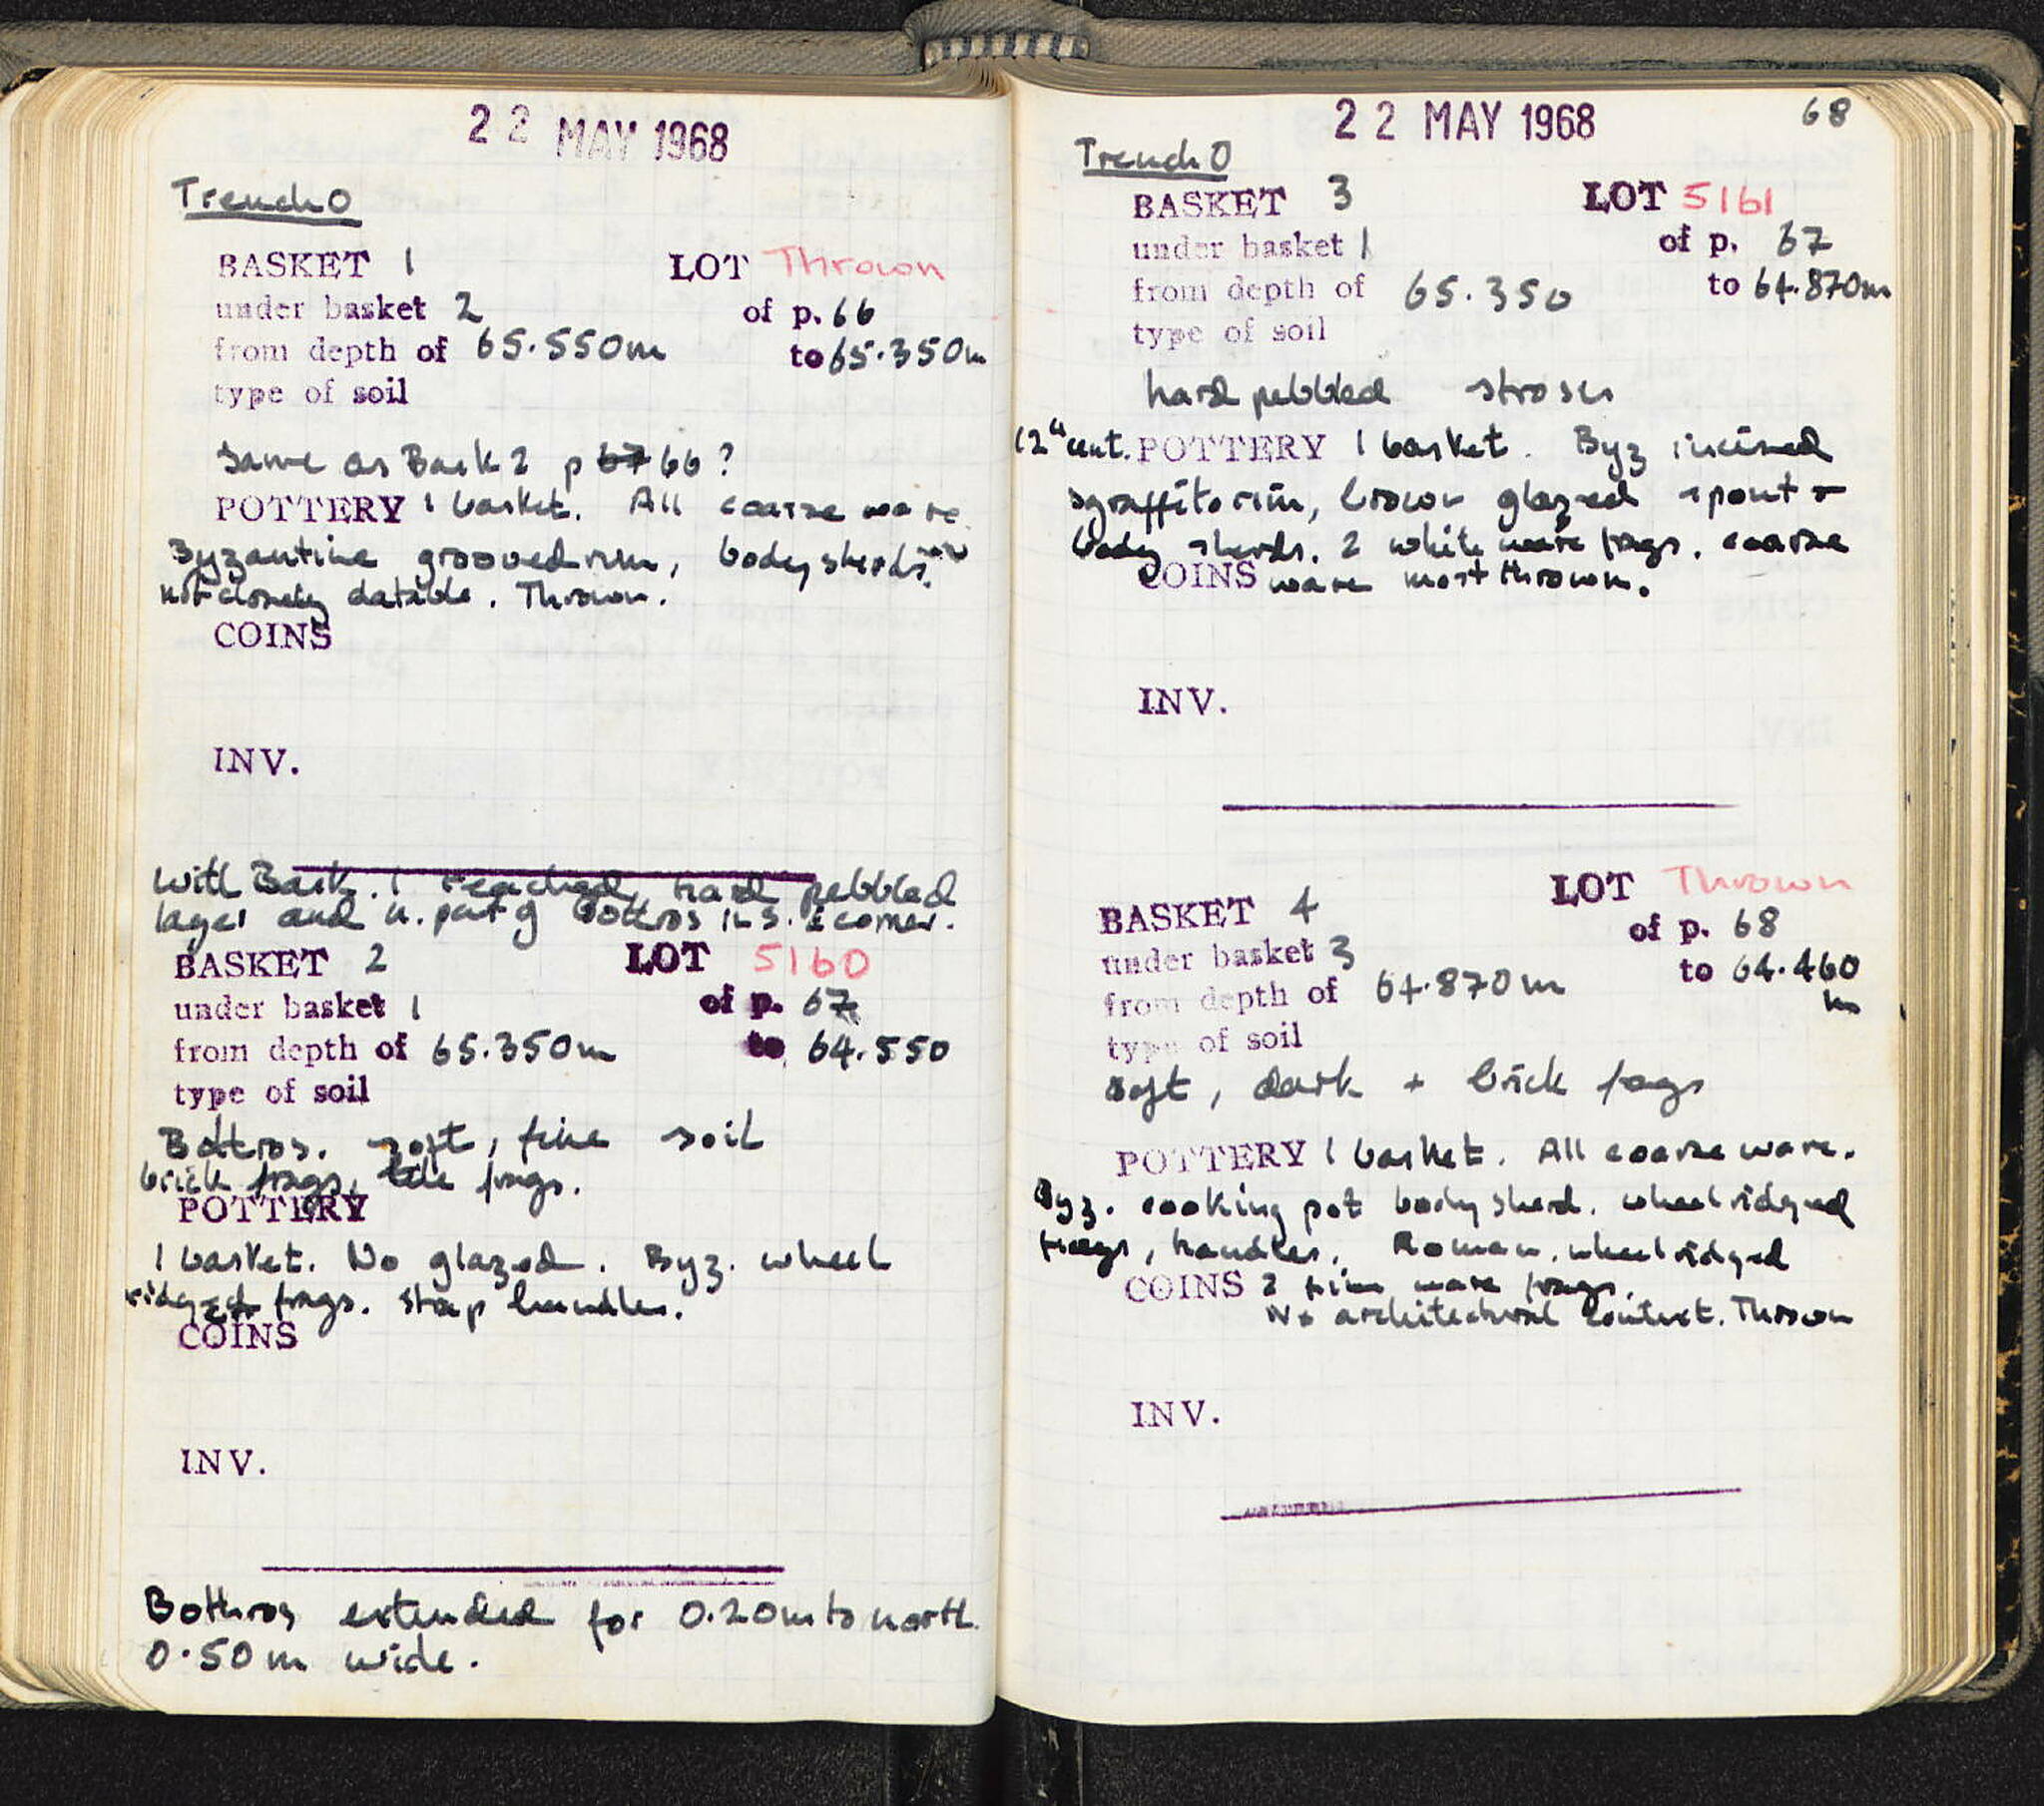 22 MAY 1968
Trench O
BASKET 1 LOT Thrown
under basket 2 of p. 66
from depth of 65.550m to 65.350m
type of soil
Same as Bask 2 p 67 66?
POTTERY 1 basket. All coarse ware
Byzantine grooved rim, body sherds.
not closely datable. Thrown.
COINS
INV.
With Bask. 1 reached hard pebbled
layer and n. part of bothros in S. E corner.
BASKET 2 LOT 5160
under basket 1 of p. 67
from depth of 65.350m to 64.550
type of soil
Bothros. soft, fine soil
brick frags, tile frags.
POTTERY
1 basket. No glazed. Byz. wheel
ridged frags. Strap handles.
COINS
INV.
Bothros extended for 0.20m to north
0.50m wide.
22 MAY 1968 68
Trench O
BASKET 3 LOT 5161
under basket 1 of p. 67
from depth of 65.350 to 64.870m
type of soil
hard pebbled stroses
12th cent. POTTERY 1 basket. Byz incised
sgraffito rim, brown glazed spout +
body sherds. 2 white ware frags. coarse
COINS ware most thrown.
INV.
BASKET 4 LOT Thrown
under basket 3 of p. 68
from depth of 64.870m to 64.460
m
type of soil
soft, dark + brick frags
POTTERY 1 basket. All coarse ware.
Byz. cooking pot body sherd. wheelridged
frags, handles. Roman. wheelridged
COINS 2 thin ware frags.
No architectural context. Thrown
INV.